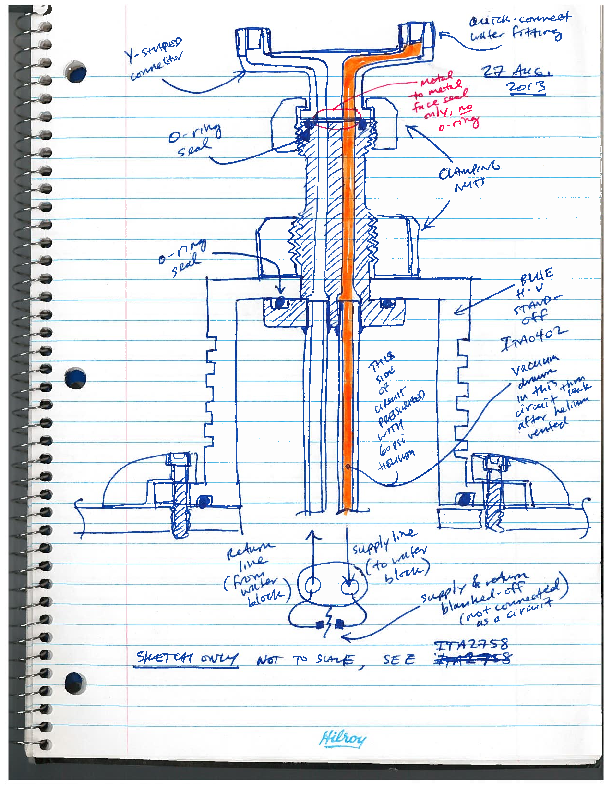 Quick-connect
water fitting
27 Aug.
2013
Y-shaped
connector
metal
to metal
face seal
only, no
o-ring
O-ring
seal
CLAMPING
NUTS
O-ring
seal
BLUE
H.V
STAND-
OFF
ITA0402
THIS
SIDE
OF
CIRCUIT
PRESSURIZED
WITH
60 psi
HELIUM
vacuum
drawn
in this thin
circuit leak
after helium
vented
Return
line
(from
water
block)
supply line
(to water
block)
supply & return
blanked-off
(not connected)
as a circuit
ITA2758
SKETCH ONLY NOT TO SCALE, SEE
Hilroy